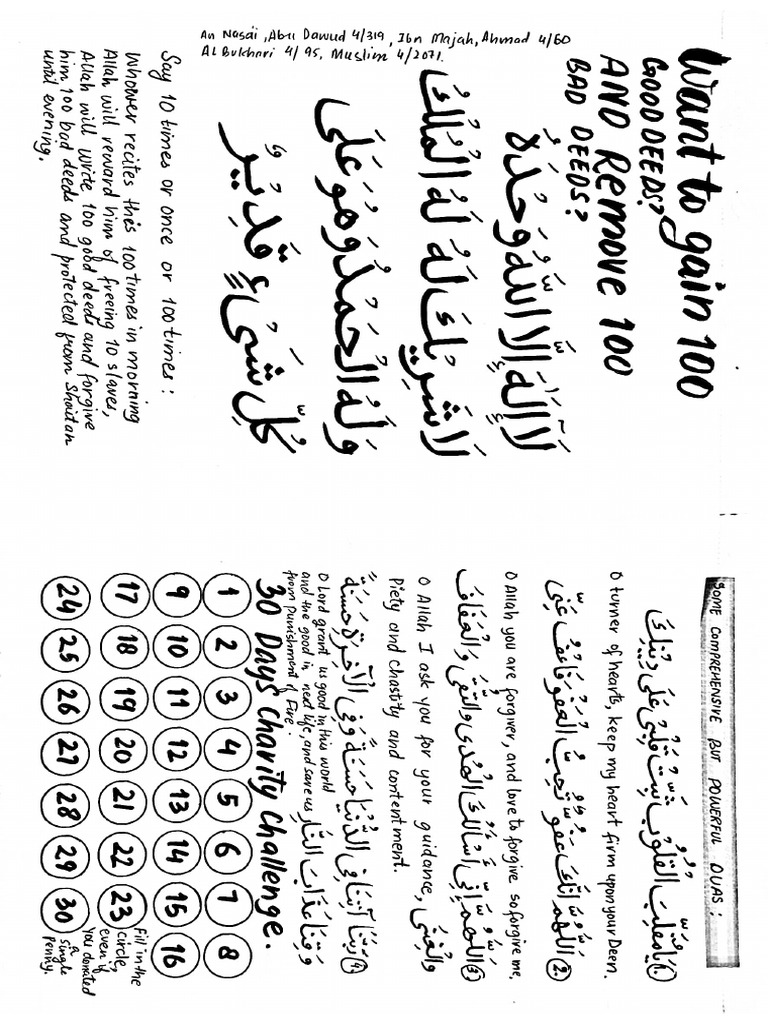 Want to gain 100
GOOD DEEDS?
AND Remove 100
BAD DEEDS?
لَآ إِلٰهَ إِلَّا اللّٰهُ وَحْدَهُ
لَا شَرِيْكَ لَهُ لَهُ الْمُلْكُ
وَلَهُ الْحَمْدُ وَهُوَ عَلَى
كُلِّ شَيْءٍ قَدِيْرٌ
Say 10 times or once or 100 times:
Whower recites this 100 times in morning
Allah will reward him of freeing 10 slaves,
Allah will write 100 good deeds and forgive
him 100 bad deeds and protected from Shaitan
until evening.
An Nasai, Abu Dawud 4/319, Ibn Majah, Ahmad 4/60
AL Bukhari 4/95, Muslim 4/2071.
SOME COMPREHENSIVE BUT POWERFUL DUAS:
1. يَا مُقَلِّبَ الْقُلُوْبِ ثَبِّتْ قَلْبِيْ عَلَى دِيْنِكَ
O turner of hearts, keep my heart firm upon your Deen.
2. اَللّٰهُمَّ اِنَّكَ عَفُوٌّ تُحِبُّ الْعَفْوَ فَاعْفُ عَنِّيْ
O Allah you are forgiver, and love to forgive so forgive me,
3. اَللّٰهُمَّ إِنِّيْ أَسْأَلُكَ الْهُدَى وَالتُّقَى وَالْعَفَافَ
وَالْغِنَى
O Allah I ask you for your guidance,
Piety and chastity and contentment.
4. رَبَّنَا آتِنَا فِي الدُّنْيَا حَسَنَةً وَفِي الْآخِرَةِ حَسَنَةً
وَقِنَا عَذَابَ النَّارِ
O Lord grant us good in this world
and the good in next life, and save us
from punishment of Fire.
30 Days Charity Challenge.
1 2 3 4 5 6 7 8
9 10 11 12 13 14 15 16
17 18 19 20 21 22 23
24 25 26 27 28 29 30
Fill in the
circle,
even if
you donated
a
single
penny.